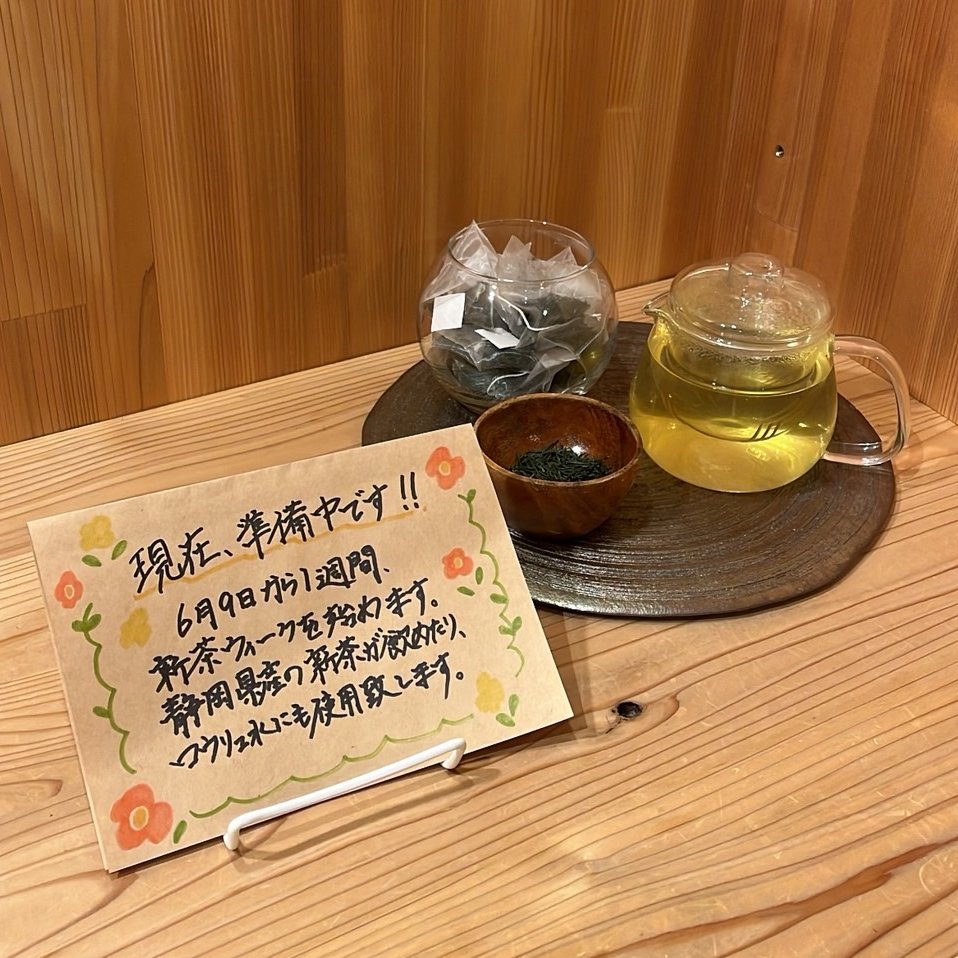 現在、準備中です!!
6月9日から1週間、
新茶ウィークを始めます。
静岡県産の新茶が飲めたり、
ロウリュ水にも使用致します。